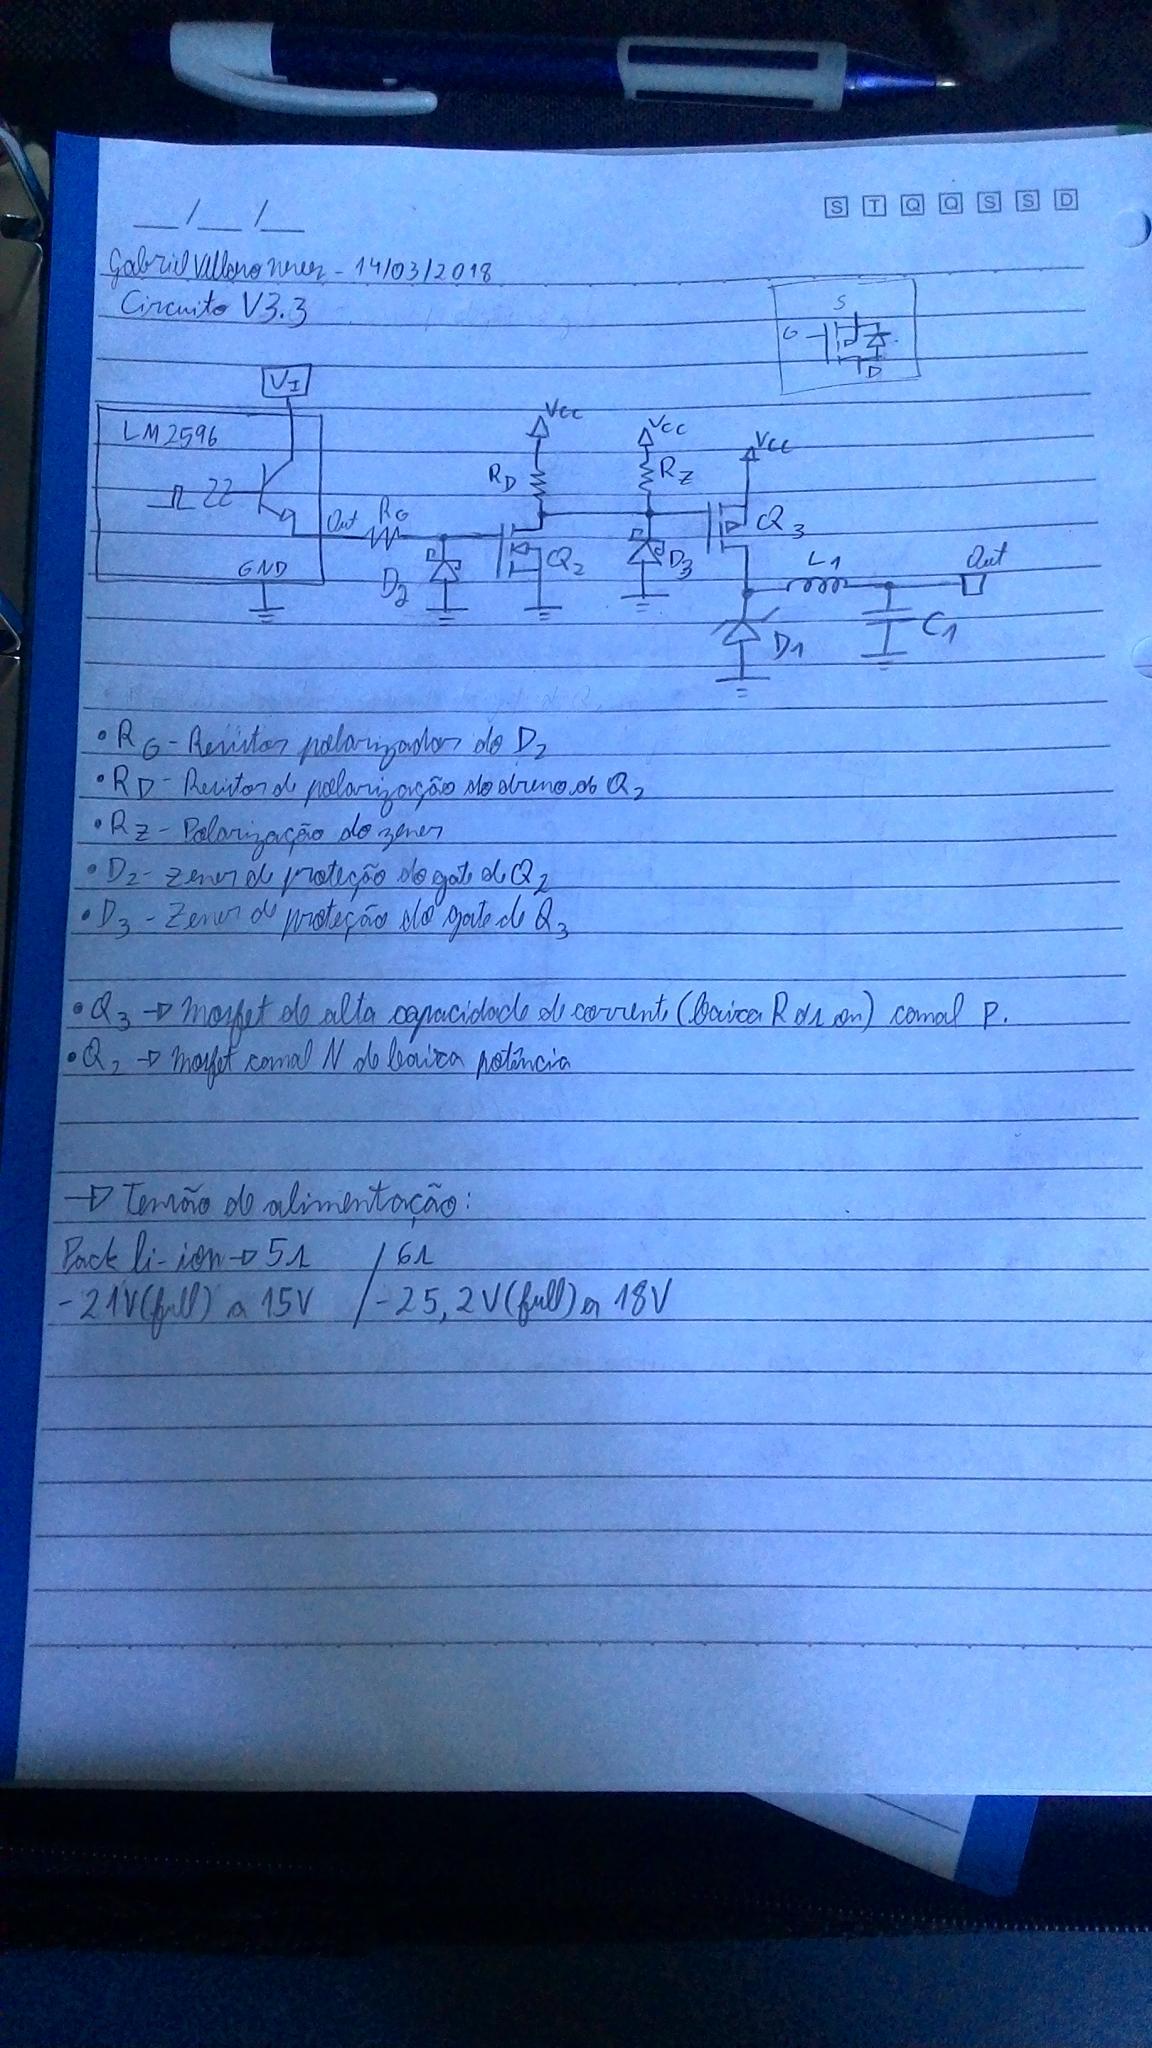 S T Q Q S S D
__/__/__
Gabriel - 14/03/2018
Circuito V3.3
S
G
D
VI
LM2596
Out
GND
RG
D2
Vcc
RD
Q2
Vcc
RZ
D3
Vcc
Q3
L1
Out
C1
D1
• RG - Resistor polarizador do D2
• RD - Resistor de polarização do dreno do Q2
• RZ - Polarização do zener
• D2 - zener de proteção do gate de Q2
• D3 - Zener de proteção do gate de Q3
• Q3 → Mosfet de alta capacidade de corrente (baixa Rds on) canal P.
• Q2 → Mosfet canal N de baixa potência
→ Tensão de alimentação:
Pack li-ion → 5s / 6s
- 21V(full) a 15V / - 25,2V(full) a 18V